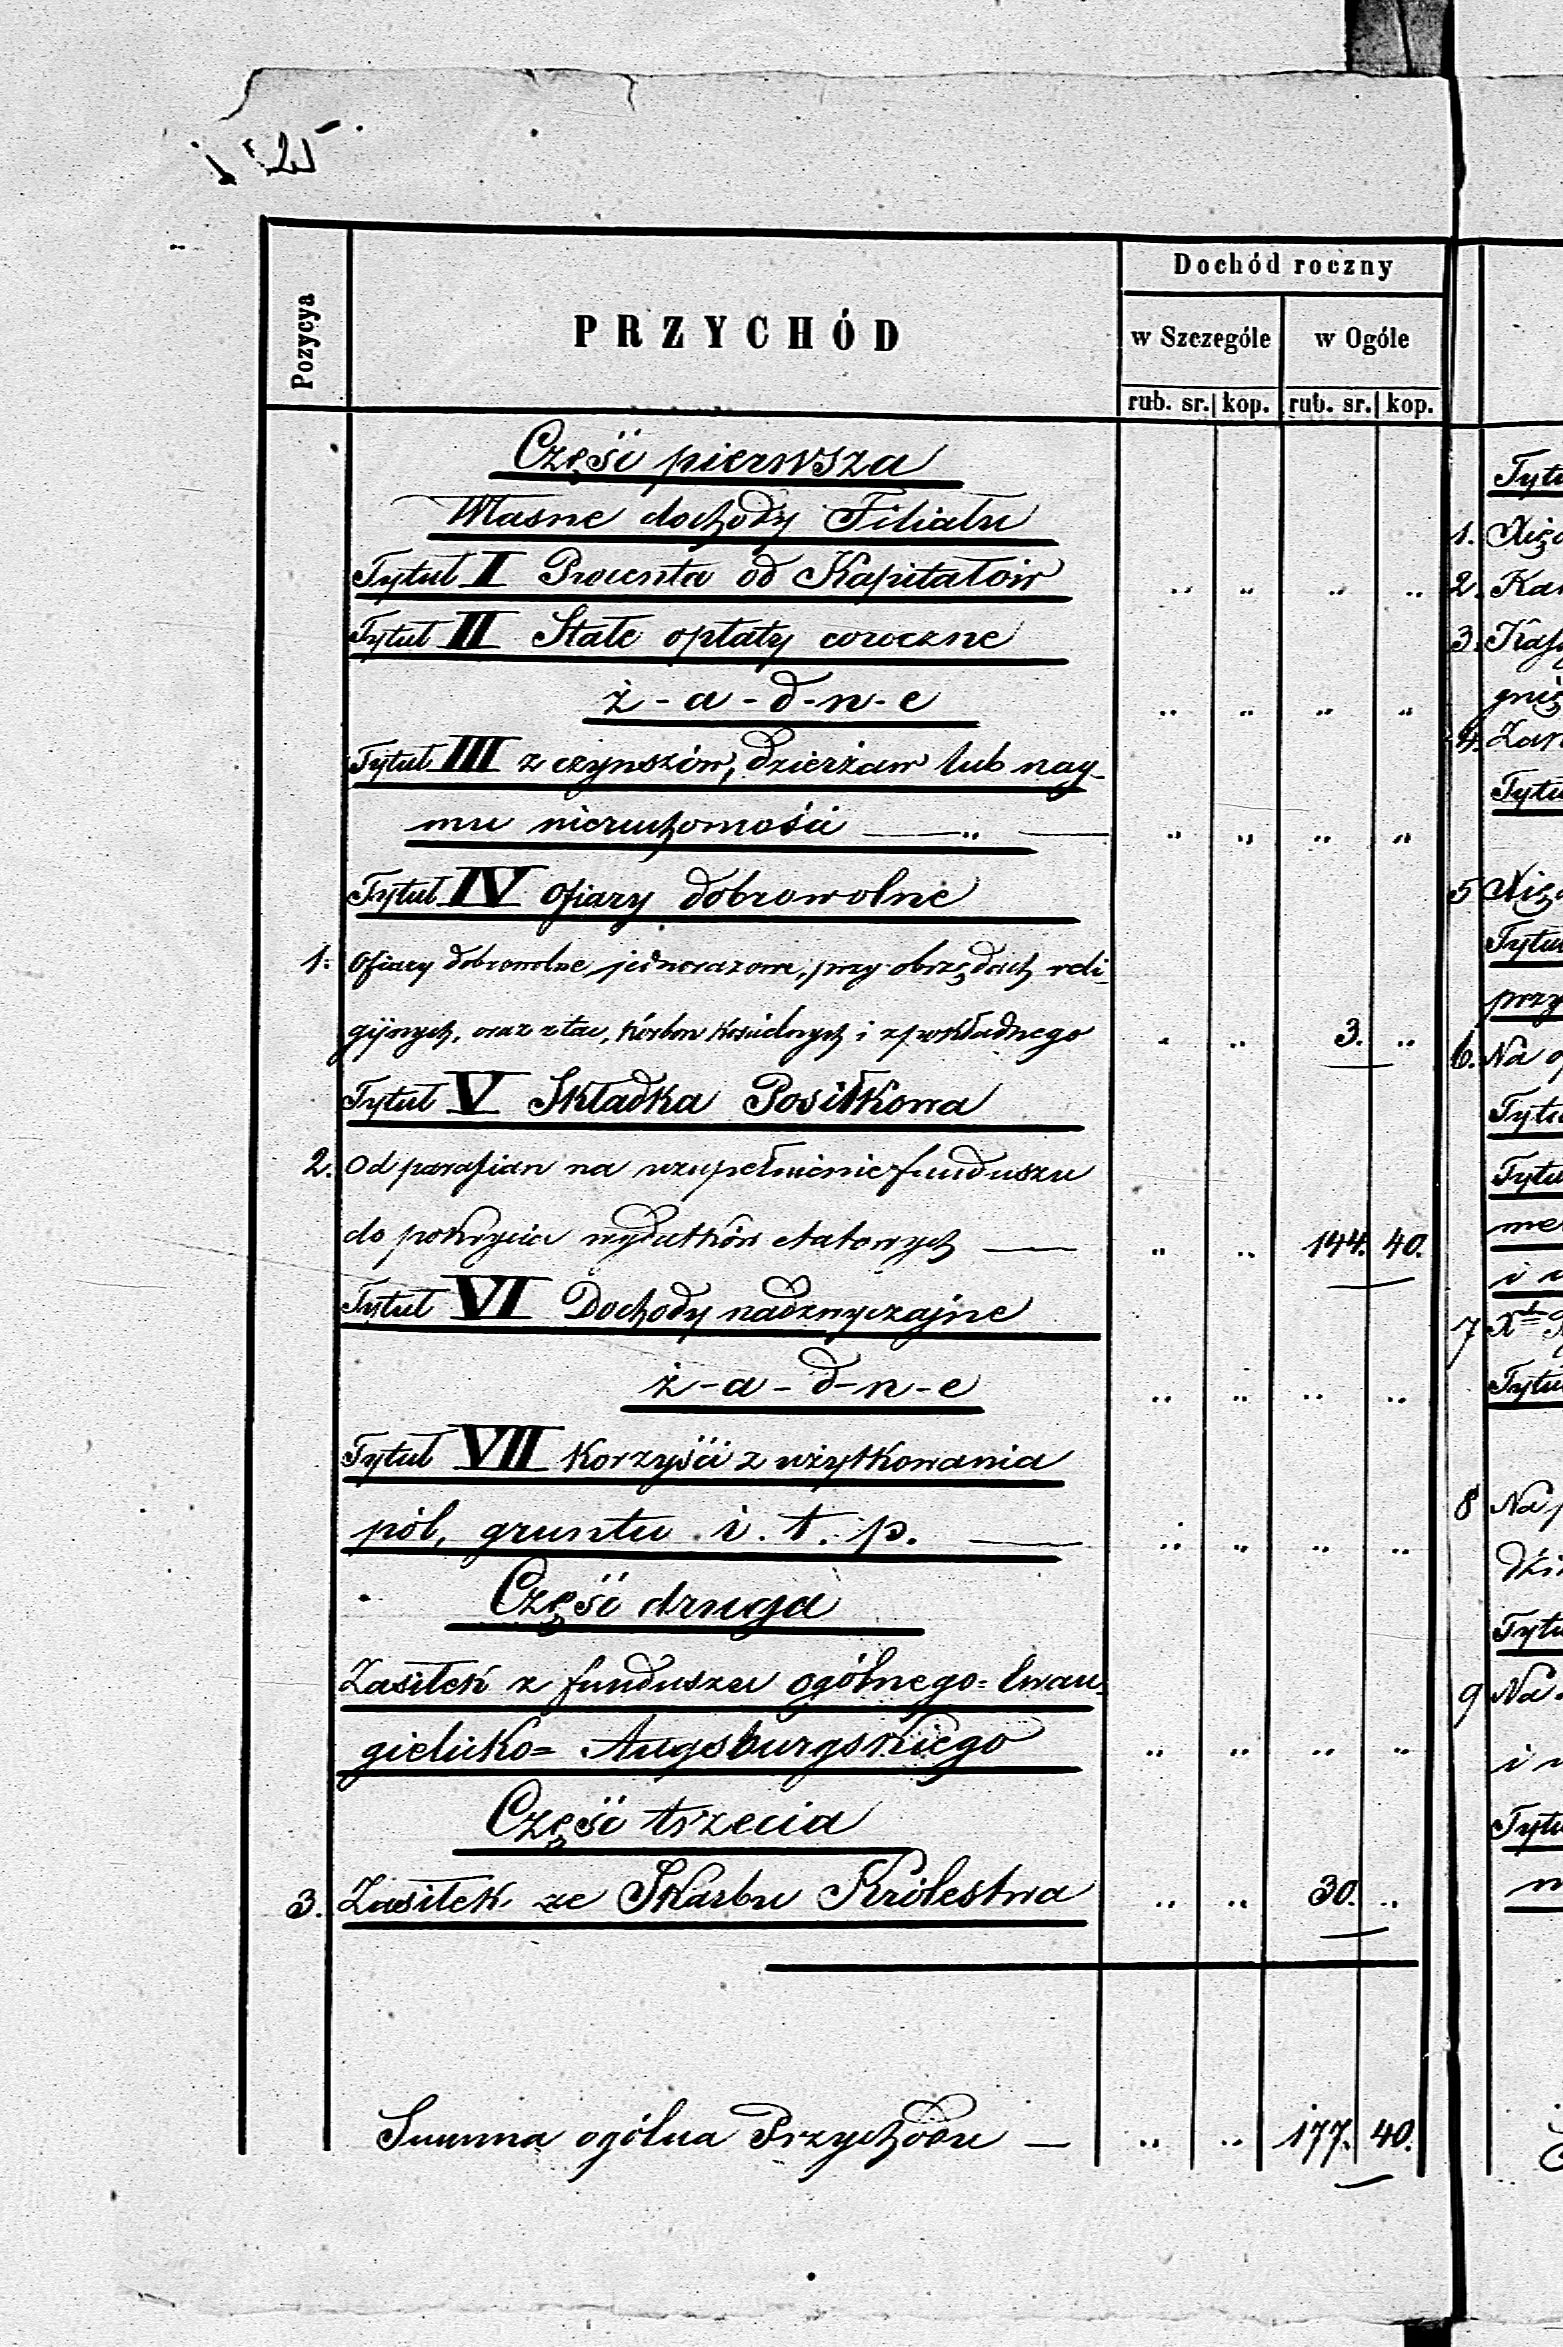 Dochód roczny
Pozycya PRZYCHÓD w Szczególe w Ogóle
rub. sr. kop. rub. sr. kop.
Część pierwsza
Własne dochody Filiału
Tytuł I Procenta od Kapitałów " " " "
Tytuł II Stałe opłaty coroczne
ż-a-d-n-e " " " "
Tytuł III z czynszów, dzierżaw lub nay-
mu nieruchomości — " — " " " "
Tytuł IV Ofiary dobrowolne
1. Ofiary dobrowolne jednorazowe, przy obrzędach reli-
gijnych, oraz z tac, skarbon Kościelnych i z pokładnego " " 3. "
Tytuł V Składka Posiłkowa
2. Od parafian na uzupełnienie funduszu
do pokrycia wydatków etatowych — " " 144. 40.
Tytuł VI Dochody nadzwyczajne
ż-a-d-n-e " " " "
Tytuł VII Korzyści z użytkowania
pól, gruntu i. t. p. — " " " "
Część druga
Zasiłek z funduszu ogólnego= Ewan-
gielicko= Augsburgskiego " " " "
Część trzecia
3. Zasiłek ze Skarbu Królestwa " " 30. "
Summa ogólna Przychodu — " " 177. 40.
Tytu
1.
2. Ka
3.
4.
Tytu
5
Tytu
przy
6. Na
Tytu
Tytu
me
i
7
Tytu
8 Na
Tytu
9 Na
i
Tytu